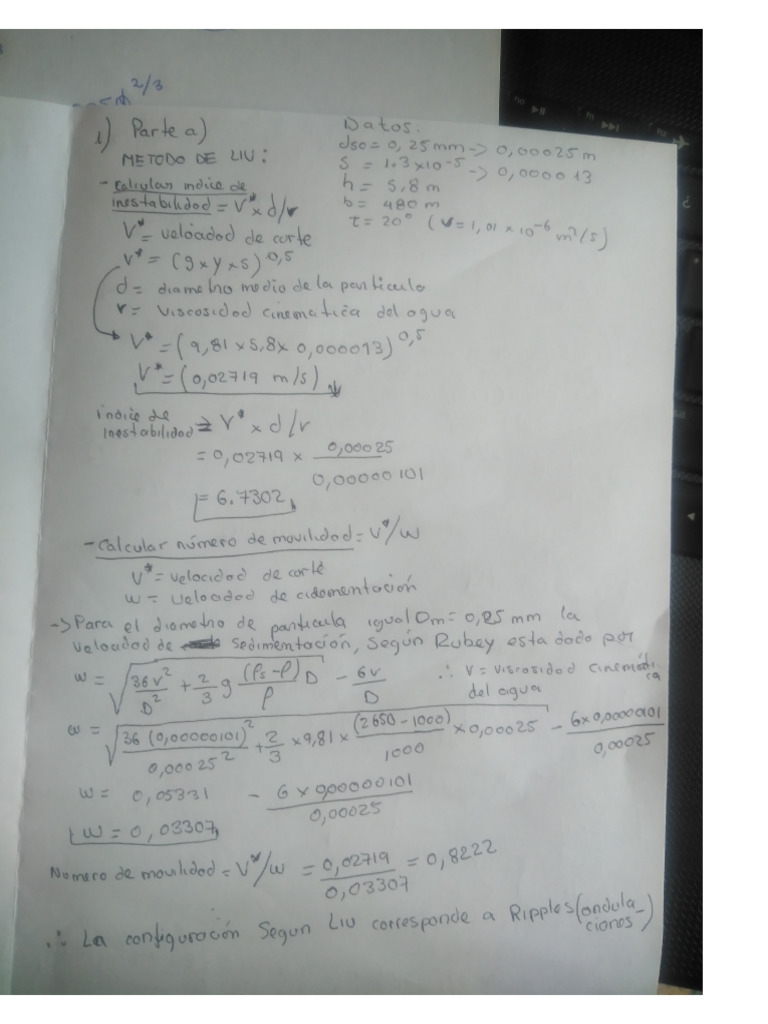 2/3
1) Parte a)
METODO DE LIU:
Datos:
d50 = 0,25mm -> 0,00025m
S = 1.3x10^-5 -> 0,000013
h = 5,8 m
b = 480 m
t = 20° (v = 1,01 x 10^-6 m²/s)
- Calcular indice de
inestabilidad = V* x d/r
V* = velocidad de corte
V* = (g x y x s)^0,5
d = diametro medio de la particula
r = viscosidad cinematica del agua
V* = (9,81 x 5,8 x 0,000013)^0,5
V* = (0,02719 m/s)
indice de
inestabilidad => V* x d/r
= 0,02719 x 0,00025 / 0,00000101
= 6.7302
- Calcular número de movilidad = V*/w
V* = velocidad de corte
w = velocidad de cidomentación
-> Para el diametro de particula igual Dm = 0,25 mm la
velocidad de sedimentación, Según Rubey esta dado por
w = √(36v²/D² + 2/3 g (ρs-ρ)/ρ D) - 6v/D ∴ v = viscosidad cinemática
del agua
w = √(36 (0,00000101)²/0,00025² + 2/3 x 9,81 x (2650-1000)/1000 x 0,00025) - 6x0,00000101/0,00025
w = 0,05331 - 6 x 0,00000101/0,00025
w = 0,03307
Numero de movilidad = V*/w = 0,02719/0,03307 = 0,8222
∴ La configuración Segun Liu corresponde a Ripples (ondula-
ciones)